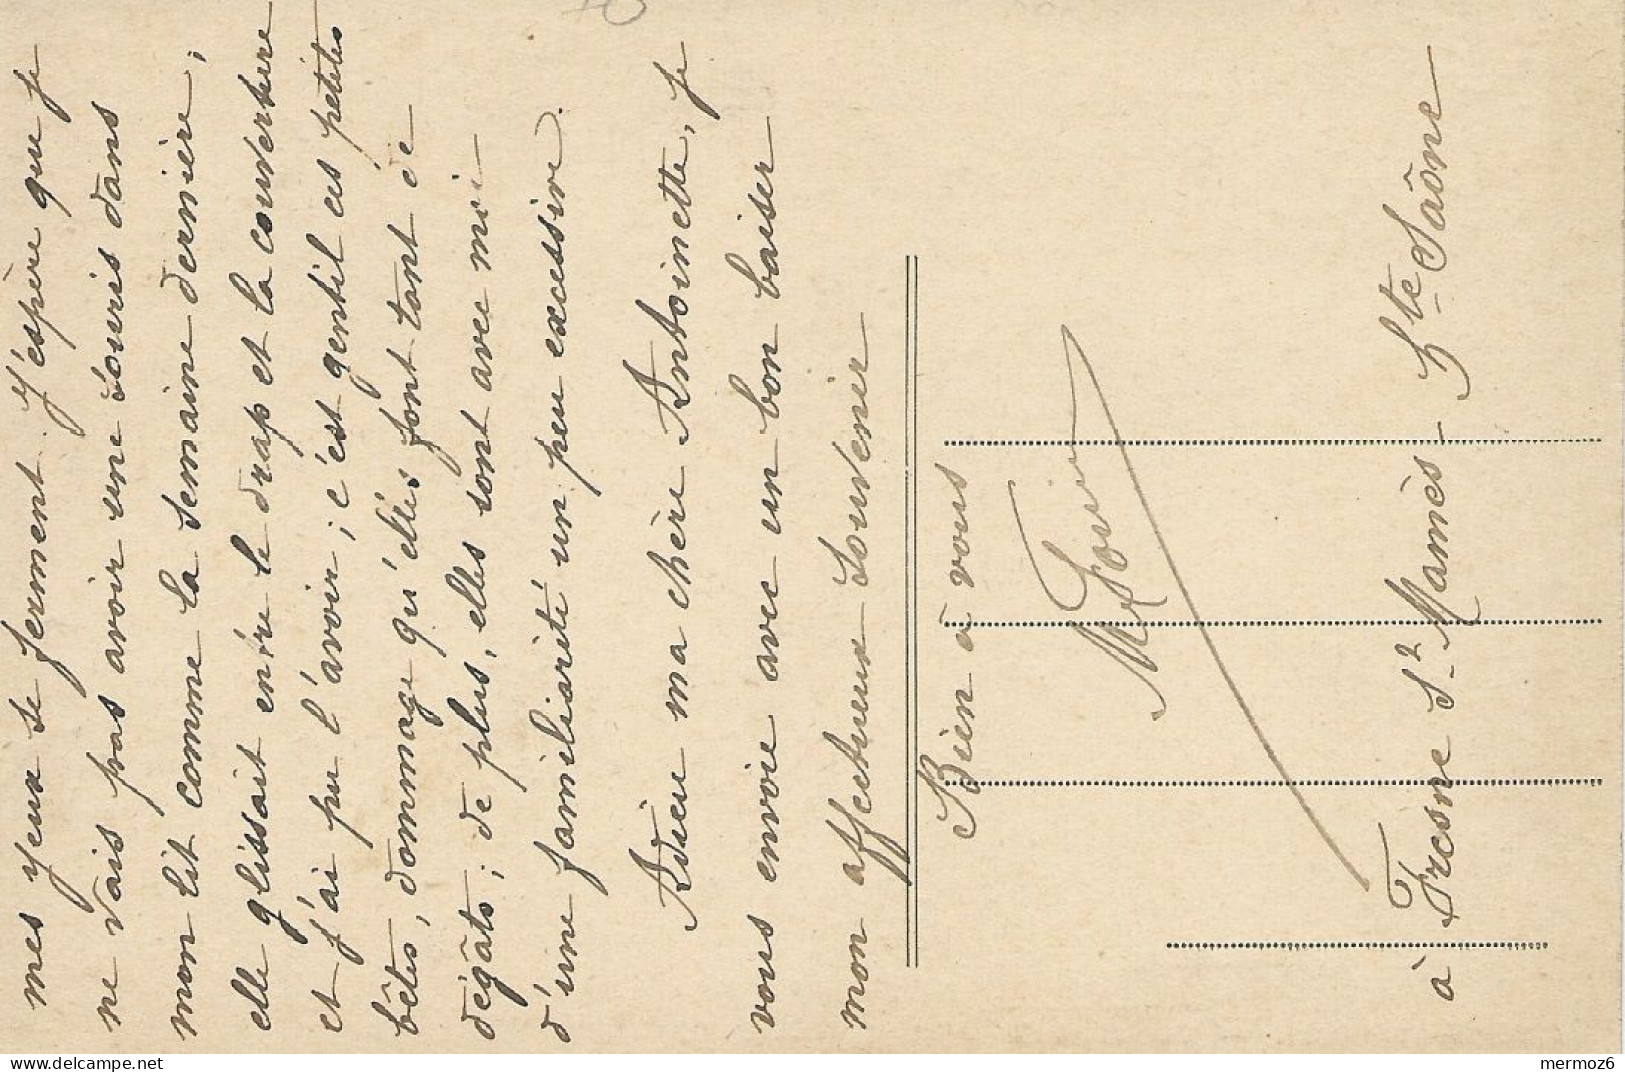 mes yeux se ferment. J'espère que je
ne vais pas avoir une souris dans
mon lit comme la semaine dernière;
elle glissait entre le drap et la couverture
et j'ai pu l'avoir; c'est gentil ces petites
bêtes, dommage qu'elles font tant de
dégâts; de plus, elles sont avec moi
d'une familiarité un peu excessive.
Adieu ma chère Antoinette, je
vous envoie avec un bon baiser
mon affectueux souvenir
Bien à vous
à Fresne St Mamès - Hte Saône
mermoz6